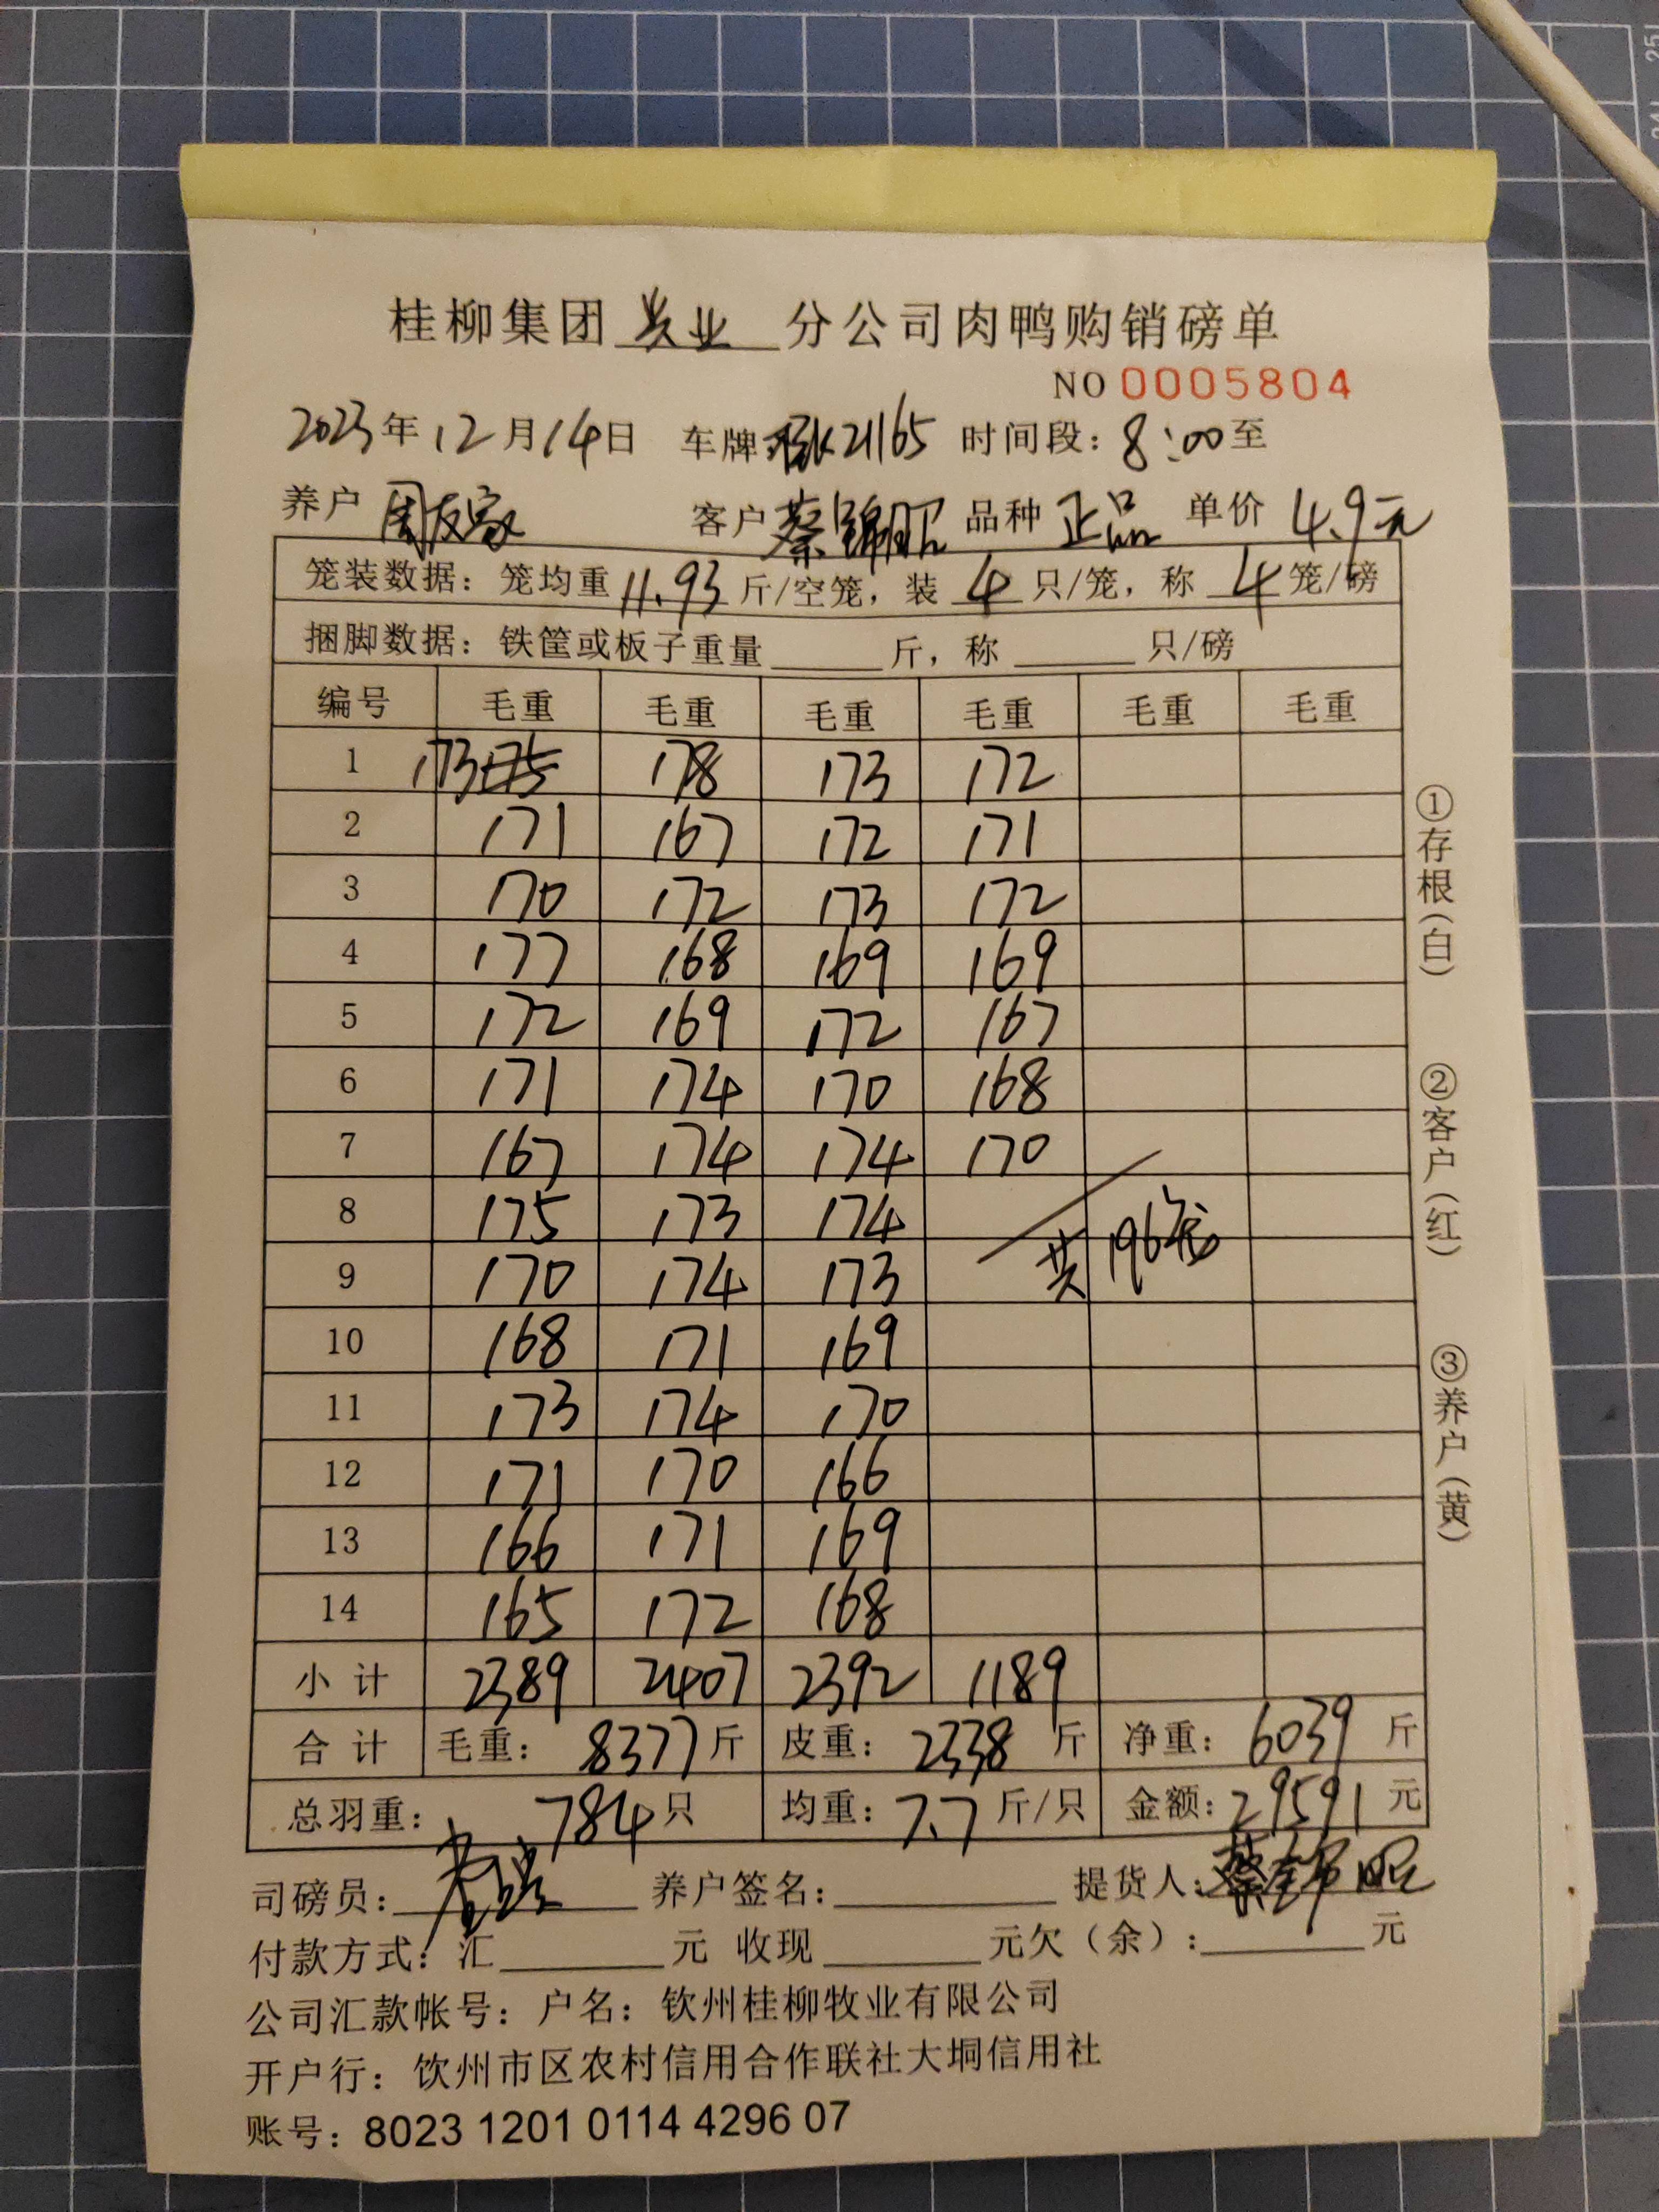 桂柳集团 兴业 分公司肉鸭购销磅单
NO 0005804
2023年12月14日 车牌 21165 时间段：8:00至
养户 周友家 客户 蔡锦昭 品种 正品 单价 4.9元
笼装数据：笼均重 11.93 斤/空笼，装 4 只/笼，称 4 笼/磅
捆脚数据：铁筐或板子重量______斤，称______只/磅
编号 毛重 毛重 毛重 毛重 毛重 毛重
1 173 175 178 173 172
2 171 167 172 171
3 170 172 173 172
4 177 168 169 169
5 172 169 172 167
6 171 174 170 168
7 167 174 174 170
8 175 173 174
9 170 174 173 共196笼
10 168 171 169
11 173 174 170
12 171 170 166
13 166 171 169
14 165 172 168
小计 2389 2407 2392 1189
合计 毛重：8377斤 皮重：2338斤 净重：6039斤
总羽重：784只 均重：7.7斤/只 金额：29591元
司磅员： 养户签名：______ 提货人：蔡锦昭
付款方式：汇______元 收现______元欠（余）：______元
公司汇款帐号：户名：钦州桂柳牧业有限公司
开户行：饮州市区农村信用合作联社大垌信用社
账号：8023 1201 0114 4296 07
①存根（白）
②客户（红）
③养户（黄）
25
24